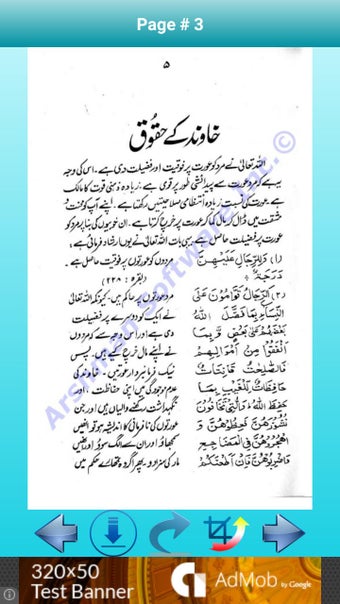 Page # 3
۵
خاوند کے حقوق
اللہ تعالیٰ نے مرد کو عورت پر فوقیت اور فضیلت دی ہے۔ اس کی وجہ
یہ ہے کہ مرد عورت سے پیدائشی طور پر قوی ہے، زیادہ ذہنی قوت کا مالک
ہے۔ عورت کی نسبت زیادہ انتظامی صلاحیتیں رکھتا ہے۔ اپنے آپ کو محنت و
مشقت میں ڈال کر مال کما کر عورت پر خرچ کرتا ہے۔ ان خوبیوں کی بنا پر مرد کو
عورت پر فضیلت حاصل ہے۔ یہی بات اللہ تعالیٰ نے یوں ارشاد فرمائی ہے،
(۱) وَلِلرِّجَالِ عَلَيْهِنَّ مردوں کو عورتوں پر فوقیت حاصل ہے۔
دَرَجَةٌ (البقرہ : ۲۲۸)
(۲) اَلرِّجَالُ قَوَّامُوْنَ عَلَى مرد عورتوں پر حاکم ہیں، کیونکہ اللہ تعالیٰ
النِّسَآءِ بِمَا فَضَّلَ اللّٰهُ نے ایک کو دوسرے پر فضیلت
بَعْضَهُمْ عَلٰى بَعْضٍ وَّ بِمَا دی ہے اور اس وجہ سے کہ مردوں
اَنْفَقُوْا مِنْ اَمْوَالِهِمْ نے اپنے مال خرچ کیے ہیں۔ پس
فَالصّٰلِحٰتُ قَانِتَاتٌ نیک فرمانبردار عورتیں، خاوند کی
حَافِظَاتٌ لِّلْغَيْبِ بِمَا عدم موجودگی میں اپنی حفاظت، اور
حَفِظَ اللّٰهُ ۚ وَالّٰتِيْ تَخَافُوْنَ نگہداشت رکھنے والیاں ہیں اور جن
نُشُوْزَهُنَّ فَعِظُوْهُنَّ وَ عورتوں کی نافرمانی کا اندیشہ ہو تو انہیں
اهْجُرُوْهُنَّ فِي الْمَضَاجِعِ سمجھاؤ اور ان سے الگ سوؤ اور انہیں
وَاضْرِبُوْهُنَّ فَاِنْ اَطَعْنَكُمْ مار کی سزا دو، پھر اگر وہ تمہارے حکم میں
Arshman Software Inc. ©
320x50
Test Banner
AdMob by Google